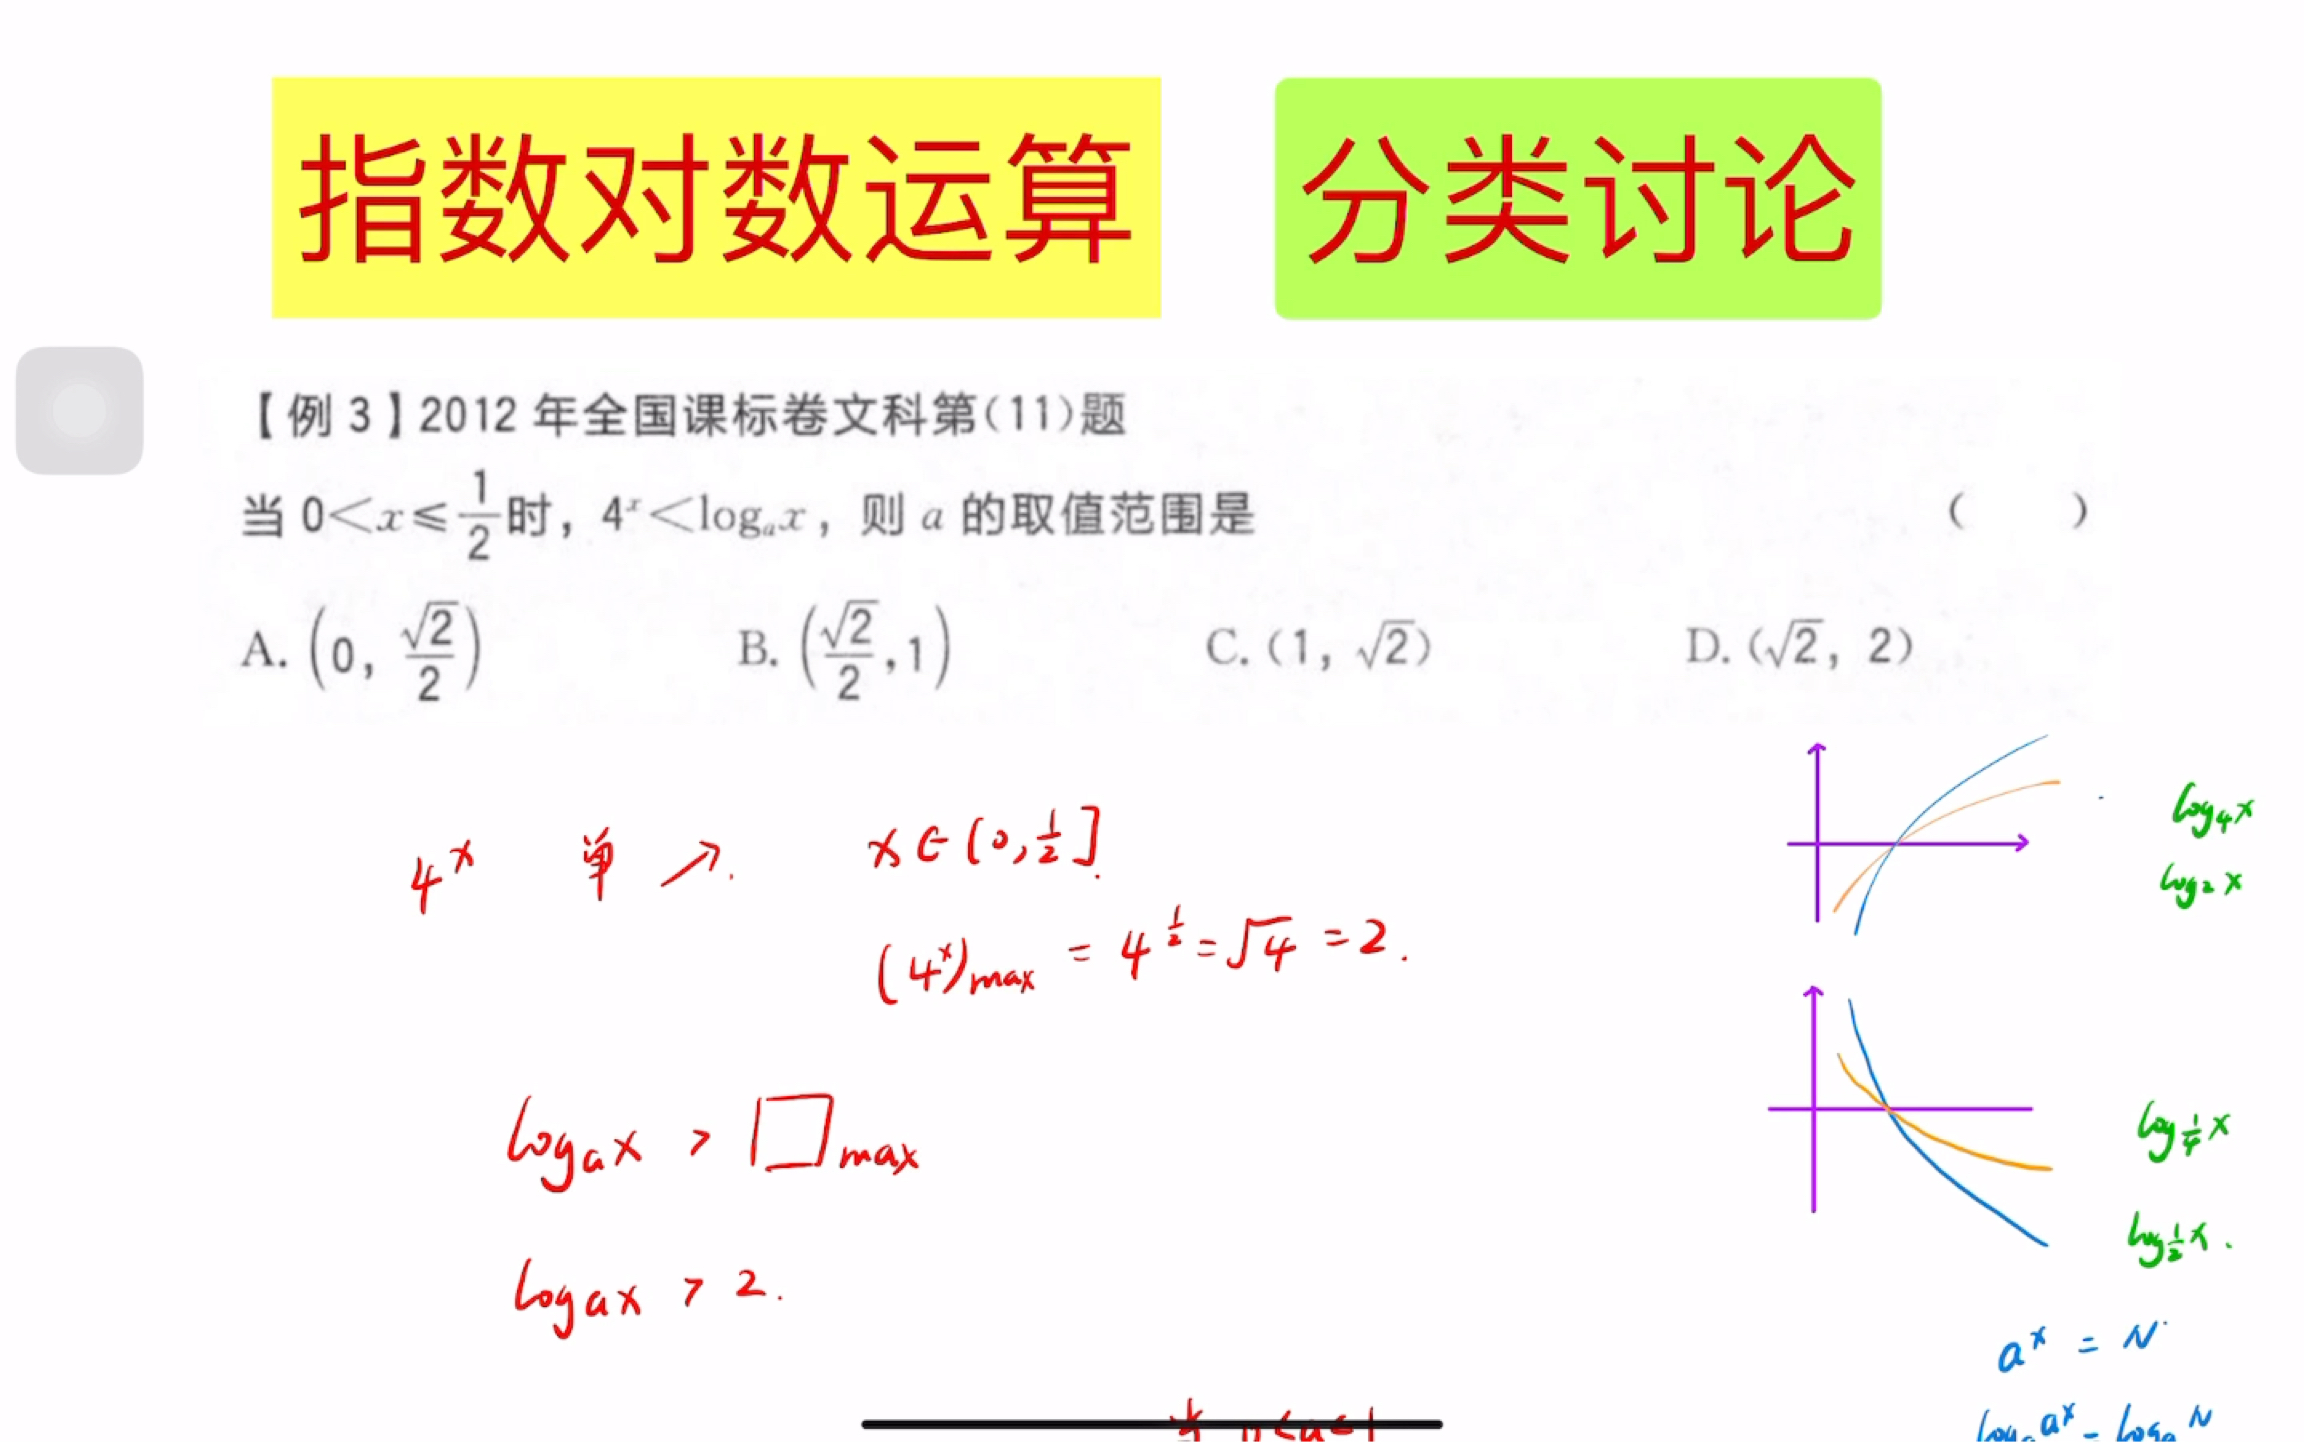 指数对数运算 分类讨论
【例 3】2012 年全国课标卷文科第(11)题
当 0<x≤1/2时，4^x<log_a x，则 a 的取值范围是 ( )
A. (0, √2/2) B. (√2/2, 1) C. (1, √2) D. (√2, 2)
4^x 单 ↗. x∈(0, 1/2].
(4^x)max = 4^(1/2) = √4 = 2.
log_a x > □max
log_a x > 2.
log_4 x
log_2 x
log_(1/4) x
log_(1/2) x.
a^x = N
log_a a^x = log_a N